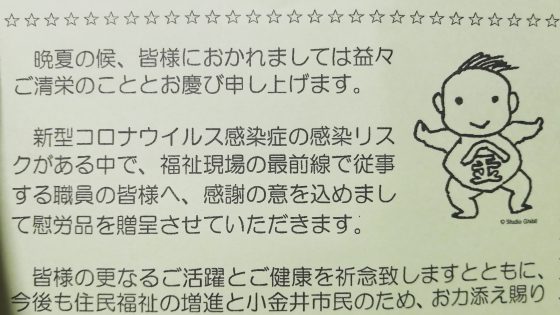 ☆☆☆☆☆☆☆☆☆☆☆☆☆☆☆☆☆☆☆☆☆☆☆☆☆☆☆☆☆☆☆☆☆☆☆
晩夏の候、皆様におかれましては益々
ご清栄のこととお慶び申し上げます。
新型コロナウイルス感染症の感染リス
クがある中で、福祉現場の最前線で従事
する職員の皆様へ、感謝の意を込めまし
て慰労品を贈呈させていただきます。
金
© Studio Ghibli
皆様の更なるご活躍とご健康を祈念致しますとともに、
今後も住民福祉の増進と小金井市民のため、お力添え賜り